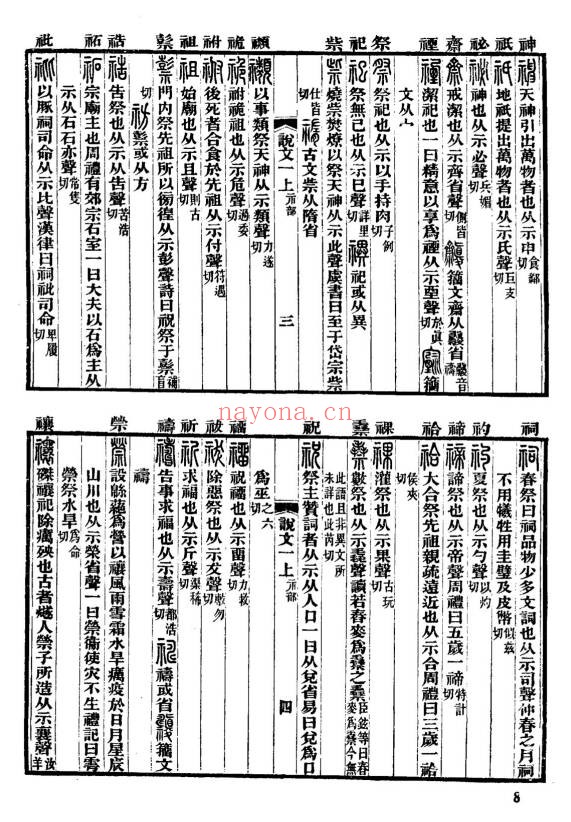 神 天神引出萬物者也从示申 食鄰切
祇 地祇提出萬物者也从示氏聲 巨支切
祕 神也从示必聲 兵媚切
齋 戒潔也从示齊省聲 側皆切 籒文齋从𩫖省 音禱
禋 潔祀也一曰精意以享爲禋从示垔聲 於眞切 籒
文从宀
祭 祭祀也从示以手持肉 子例切
祀 祭無已也从示巳聲 詳里切 禩 祀或从異
祡 燒祡焚燎以祭天神从示此聲虞書曰至于岱宗祡
仕皆切 古文祡从隋省
說文一上 示部 三
禷 以事類祭天神从示類聲 力遂切
祪 祔祪祖也从示危聲 過委切
祔 後死者合食於先祖从示付聲 符遇切
祖 始廟也从示且聲 則古切
門内祭先祖所以徬徨从示彭聲詩曰祝祭于 補盲
切 祊 或从方
祰 告祭也从示从告聲 苦浩切
祏 宗廟主也周禮有郊宗石室一曰大夫以石爲主从
示从石石亦聲 常隻切
祉 以豚祠司命从示比聲漢律曰祠祉司命 卑履切
祠 春祭曰祠品物少多文詞也从示司聲仲春之月祠
不用犧牲用圭璧及皮幣 似兹切
礿 夏祭也从示勺聲 以灼切
禘 諦祭也从示帝聲周禮曰五歲一禘 特計切
祫 大合祭先祖親疏遠近也从示合周禮曰三歲一祫
侯夾切
祼 灌祭也从示果聲 古玩切
數祭也从示毳聲讀若春麥爲之 臣鉉等曰春麥爲今無
此語且非異文所未詳也此芮切
祝 祭主贊詞者从示从人口一曰从兌省易曰兌爲口
爲巫 之六切
說文一上 示部 四
祝 也从示畱聲 力救切
祓 除惡祭也从示犮聲 敷勿切
祈 求福也从示斤聲 渠稀切
禱 告事求福也从示壽聲 都浩切 禱或省 籒文
禱
禜 設緜蕝爲營以禳風雨雪霜水旱癘疫於日月星辰
山川也从示榮省聲一曰禜衞使灾不生禮記曰雩
禜祭水旱 爲命切
禳 磔禳祀除癘殃也古者燧人禜子所造从示襄聲 汝羊
nayona.cn
8